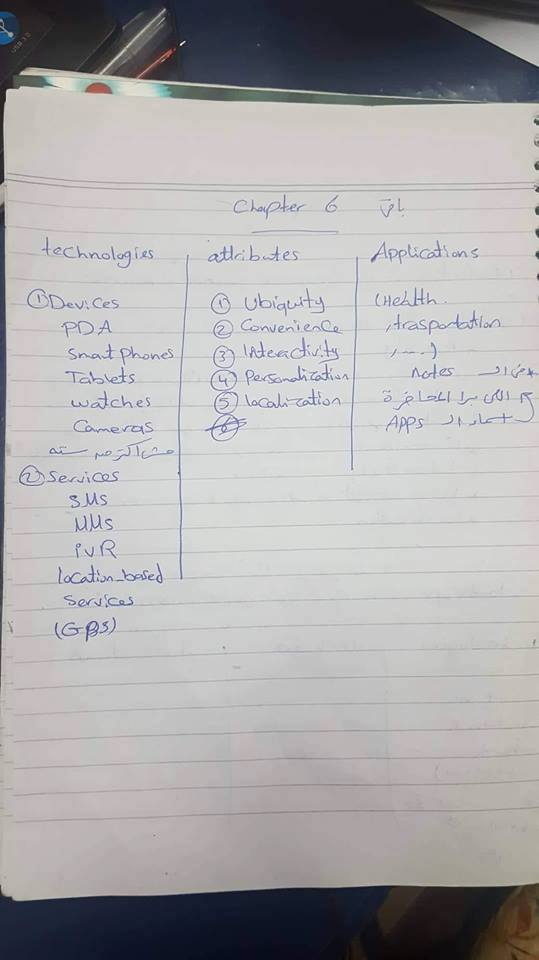 Chapter 6 باقي
technologies
① Devices
PDA
Smart phones
Tablets
watches
Cameras
مش اكتر من سته
② Services
SMS
MMS
IVR
location_based
Services
(GPS)
attributes
① Ubiquity
② Convenience
③ Interactivity
④ Personalization
⑤ localization
Applications
(Health
, trasportation
, ...)
notes الـ
اللي برا المحاضرة
APPS الـ